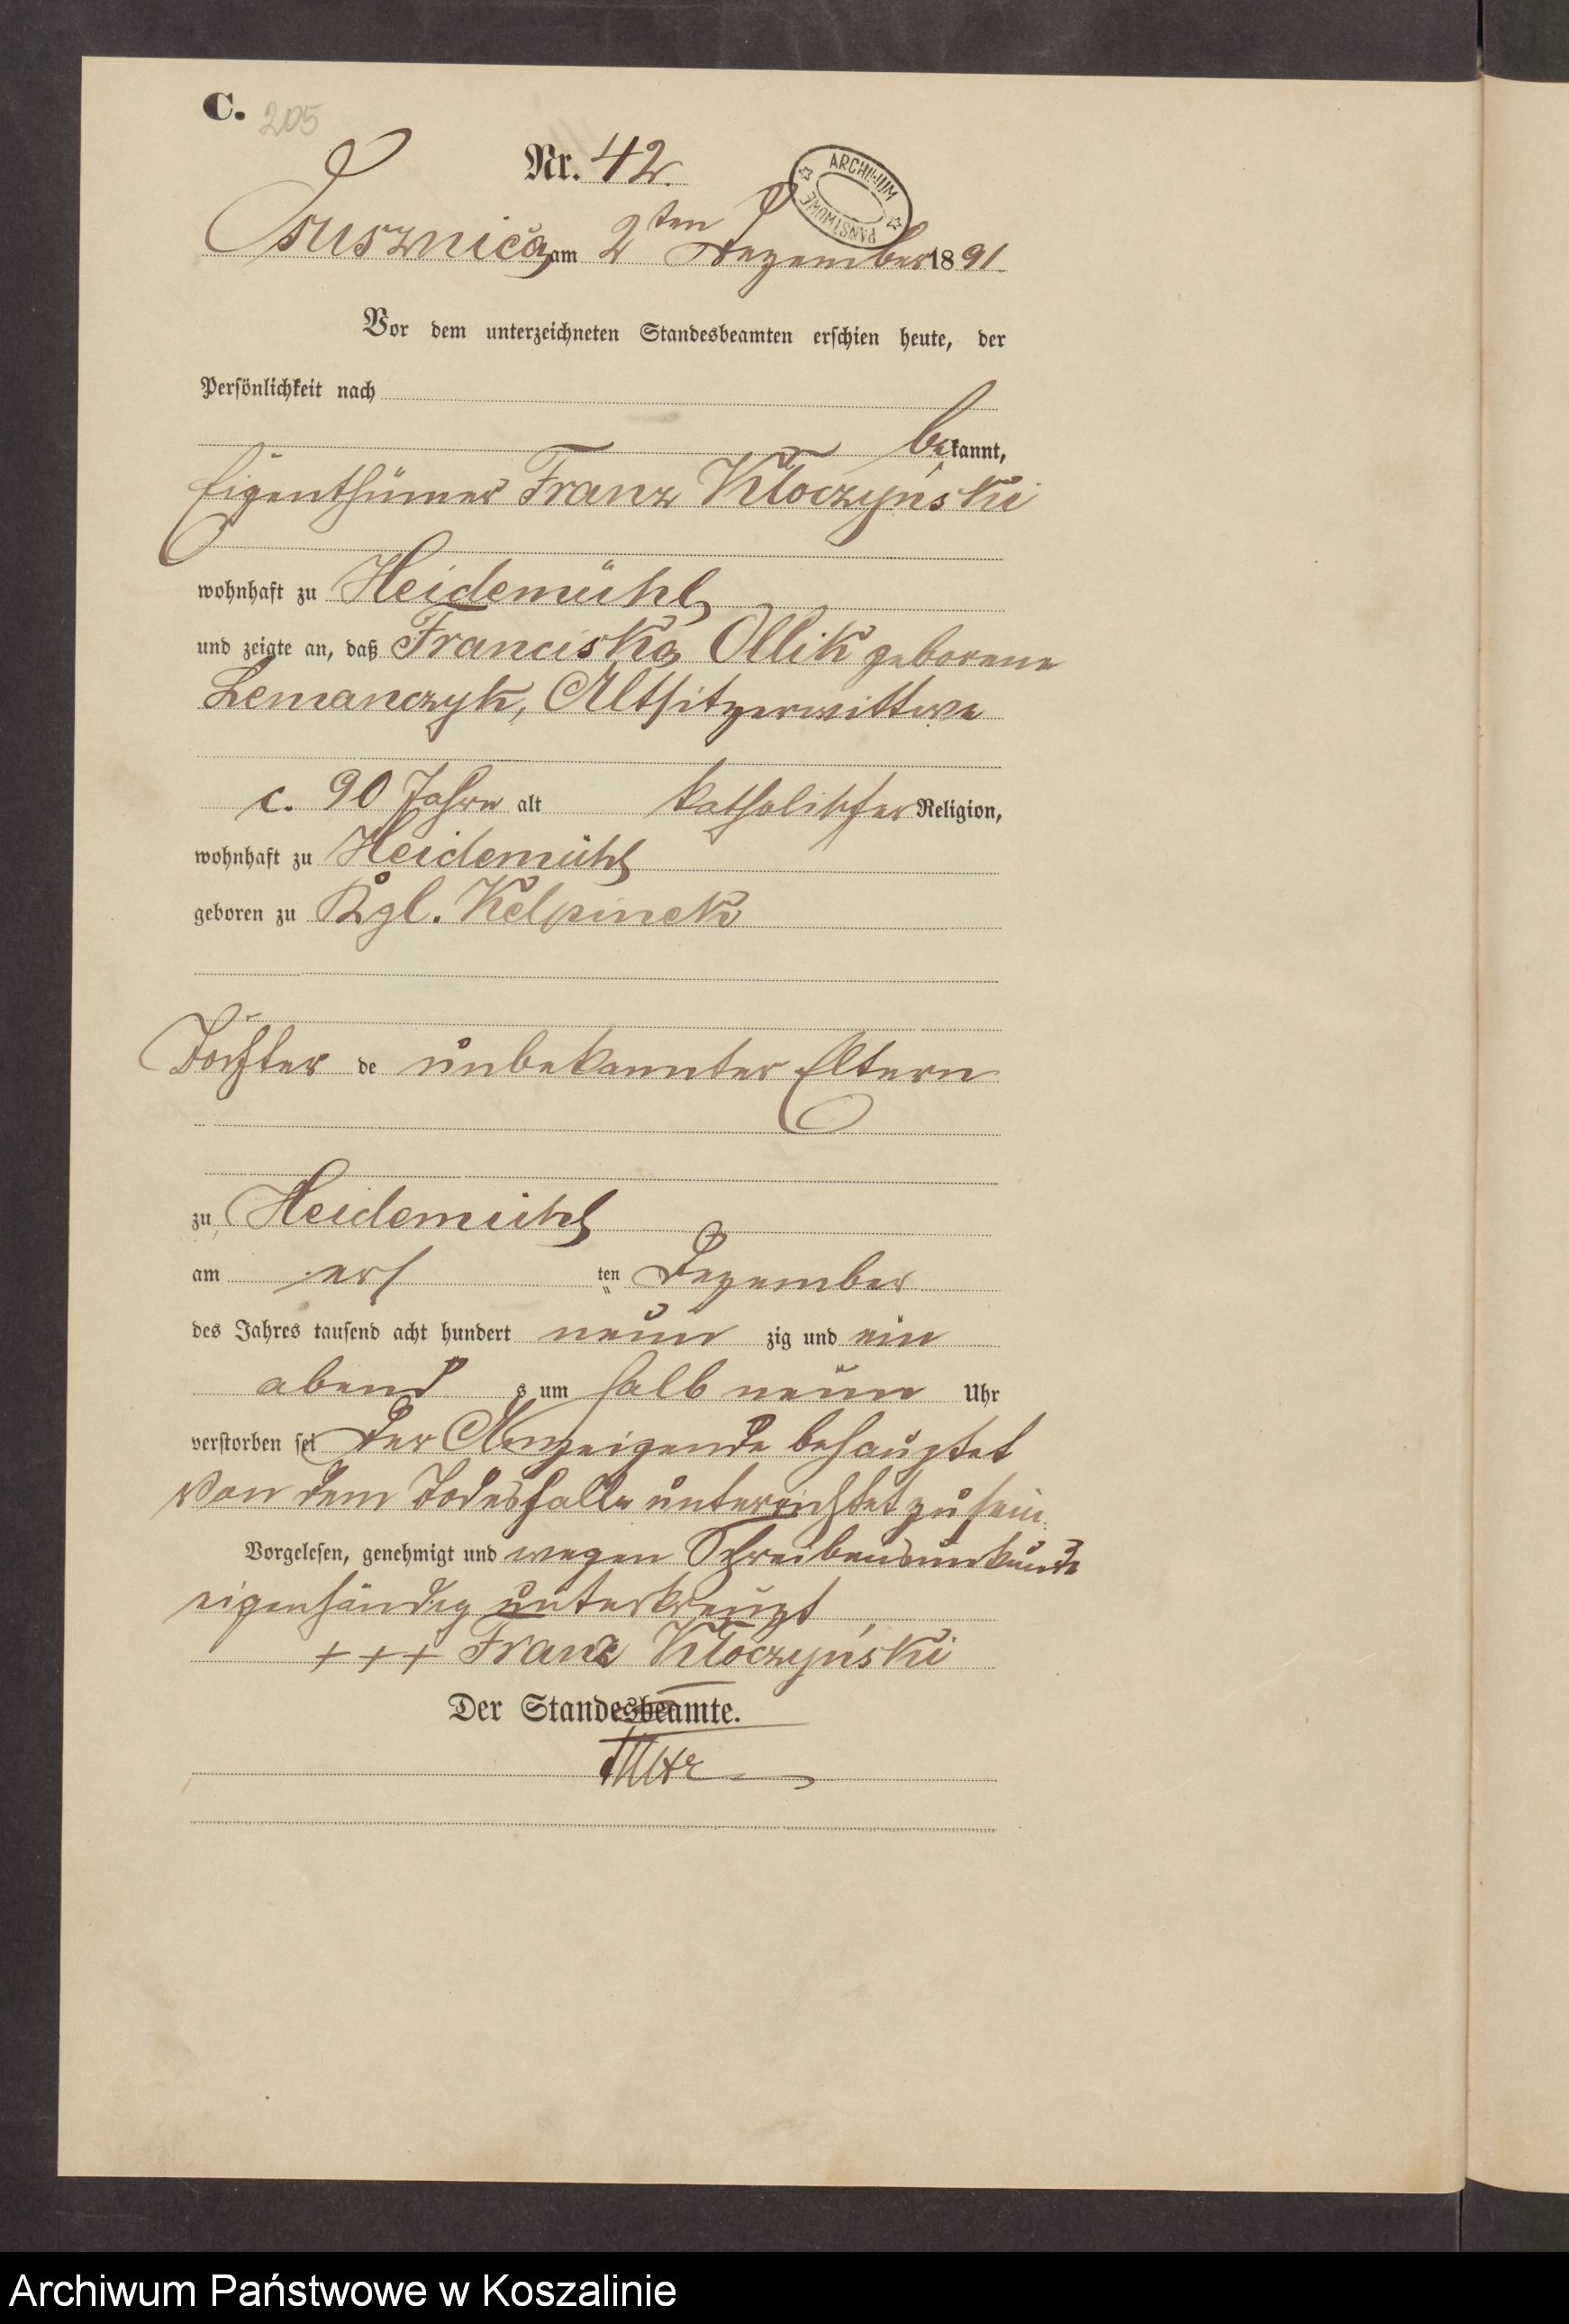 C. 205
Nr. 42.
ARCHIWUM PAŃSTWOWE
am 2ten Dezember 1891.
Vor dem unterzeichneten Standesbeamten erschien heute, der
Persönlichkeit nach
bekannt,
Eigenthümer Franz Kloczyński
wohnhaft zu Heidemühl
und zeigte an, daß Franciska Ollik geborene
Lemanczyk, Altsitzerwittwe
c. 90 Jahre alt katholischer Religion,
wohnhaft zu Heidemühl
geboren zu Kgl. Kelpinek
Tochter de unbekannter Eltern
zu Heidemühl
am erſ ten Dezember
des Jahres tausend acht hundert neun zig und ein
abend s um halb neun Uhr
verstorben sei Der Anzeigende behauptet
von dem Todesfalle unterrichtet zu sein.
Vorgelesen, genehmigt und wegen Schreibensunkunde
eigenhändig unterkreuzt
+++ Franz Kloczyński
Der Standesbeamte.
Archiwum Państwowe w Koszalinie